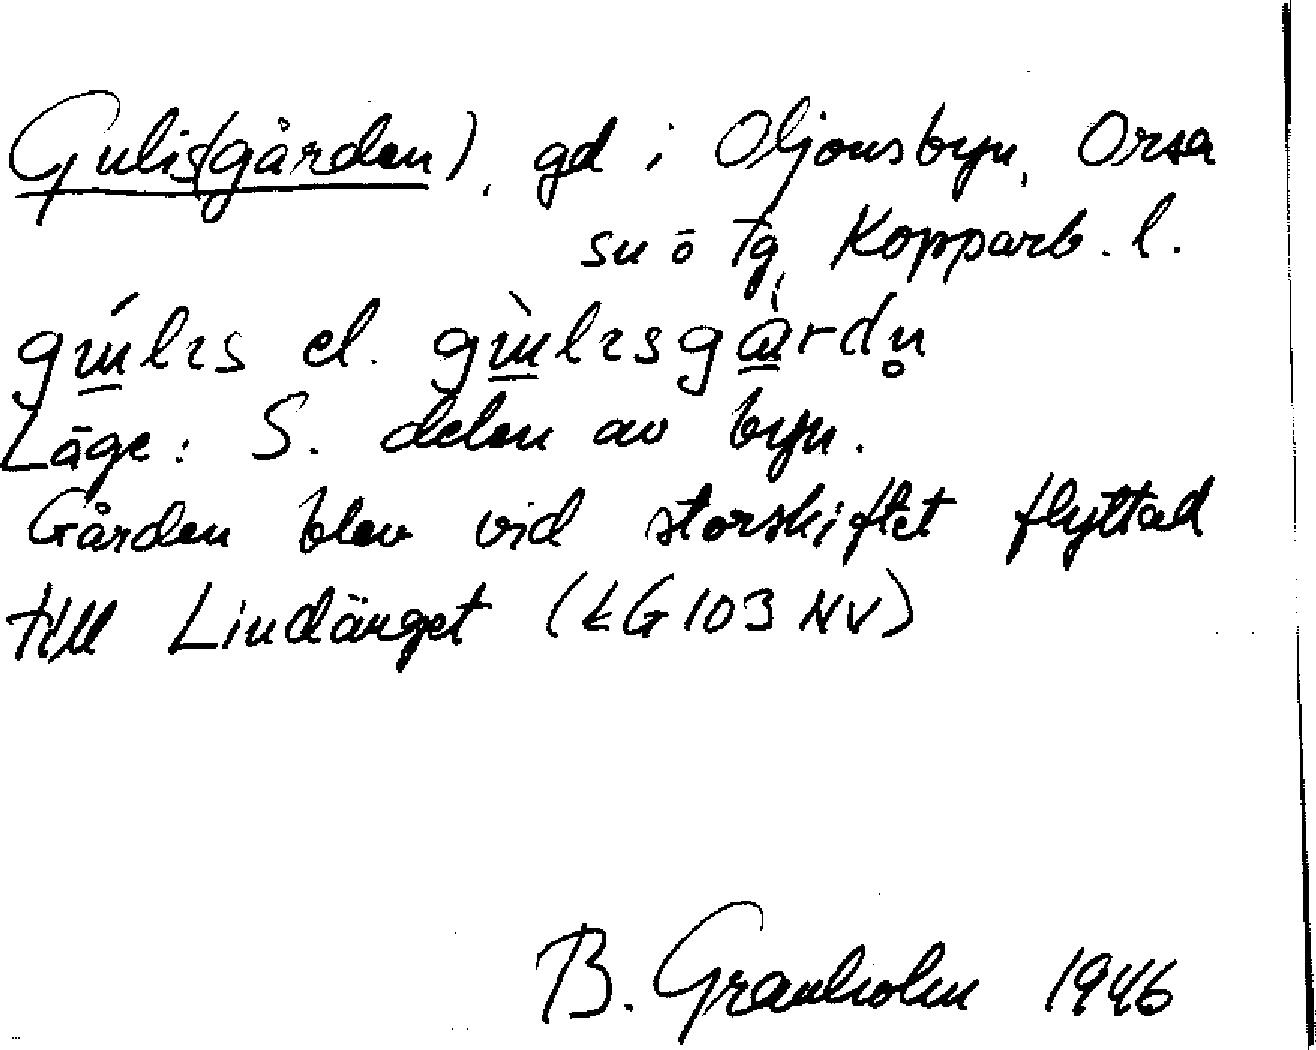 Gulis(gården), gd i Oljonsbyn, Orsa
sn o tg, Kopparb. l.
gu̲lıs el. gu̲lısga̲rdn̥
Läge: S. delen av byn.
Gården blev vid storskiftet flyttad
till Lindänget (LG 103 NV)
B. Granholm 1946